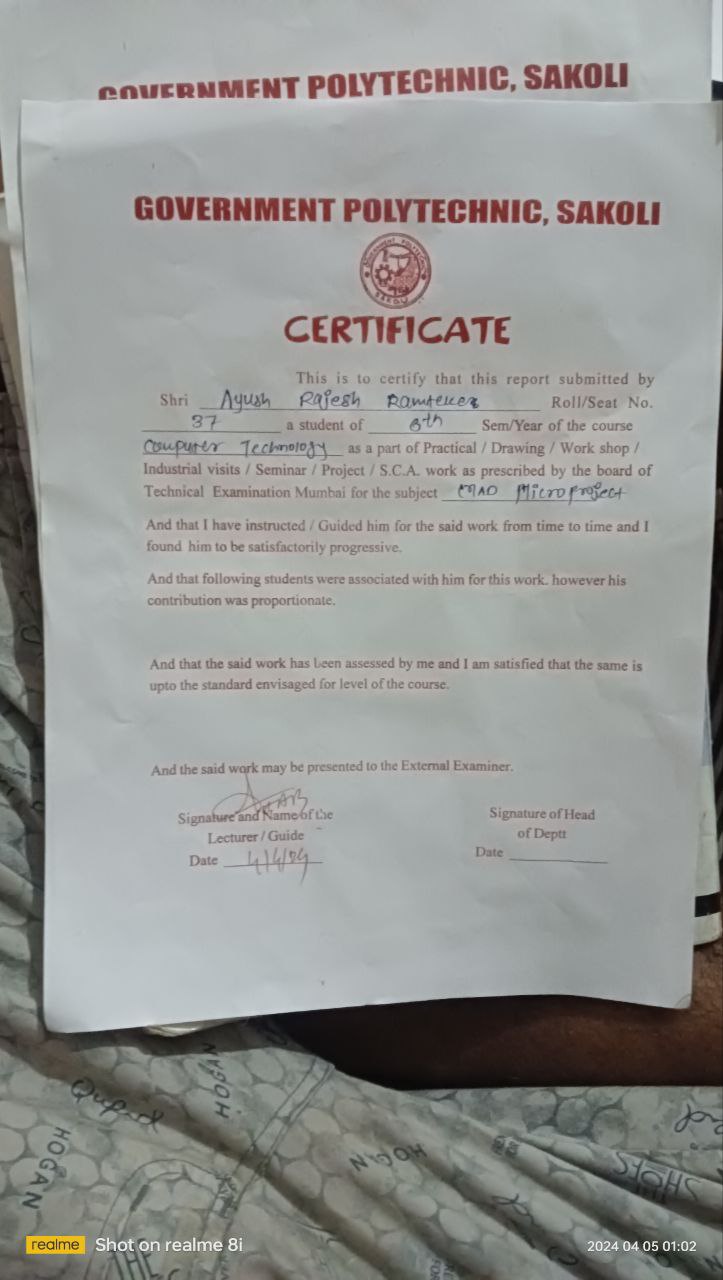 GOVERNMENT POLYTECHNIC, SAKOLI
GOVERNMENT POLYTECHNIC, SAKOLI
GOVERNMENT POLYTECHNIC
SAKOLI
CERTIFICATE
This is to certify that this report submitted by
Shri Ayush Rajesh Ramteker Roll/Seat No.
37 a student of 6th Sem/Year of the course
Computer Technology as a part of Practical / Drawing / Work shop /
Industrial visits / Seminar / Project / S.C.A. work as prescribed by the board of
Technical Examination Mumbai for the subject MAD Microproject
And that I have instructed / Guided him for the said work from time to time and I
found him to be satisfactorily progressive.
And that following students were associated with him for this work. however his
contribution was proportionate.
And that the said work has been assessed by me and I am satisfied that the same is
upto the standard envisaged for level of the course.
And the said work may be presented to the External Examiner.
Signature and Name of the
Lecturer / Guide
Date 4/4/24
Signature of Head
of Deptt
Date
HOGAN
HOGAN
HOGAN
SHOTS
realme Shot on realme 8i
2024 04 05 01:02